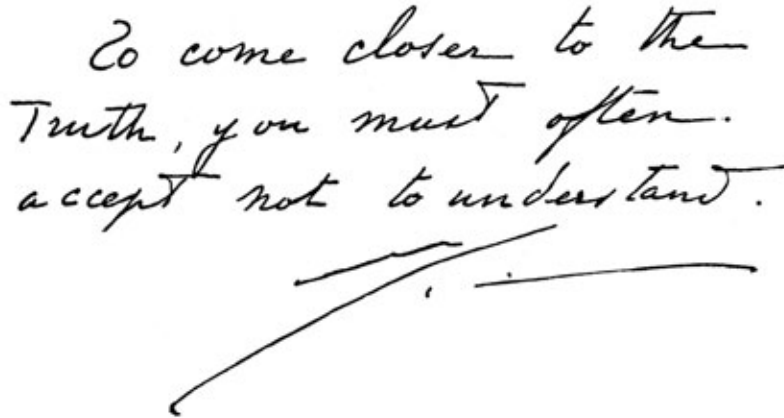 To come closer to the
Truth, you must often.
accept not to understand.